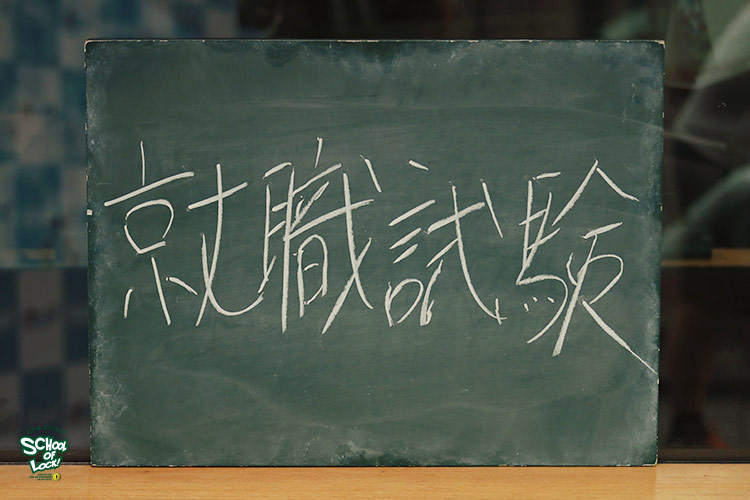 就職試験
SCHOOL
OF
LOCK!